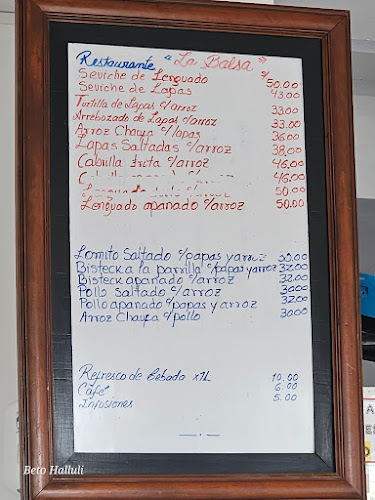 Restaurante "La Balsa"
S/
Seviche de Lenguado 50.00
Seviche de Lapas 43.00
Tortilla de Lapas c/arroz 33.00
Arrebozado de Lapas c/arroz 33.00
Arroz Chaufa c/lapas 36.00
Lapas Saltadas c/arroz 38.00
Cabrilla frita c/arroz 46.00
c/arroz 46.00
c/arroz 50.00
Lenguado apanado c/arroz 50.00
Lomito Saltado c/papas y arroz
Bisteck a la parrilla c/papas y arroz 32.00
Bisteck apanado c/arroz 32.00
Pollo Saltado c/arroz 30.00
Pollo apanado c/papas y arroz 32.00
Arroz Chaufa c/pollo 30.00
Refresco de Cebada x1L 10.00
Café 6.00
Infusiones 5.00
Beto Halluli